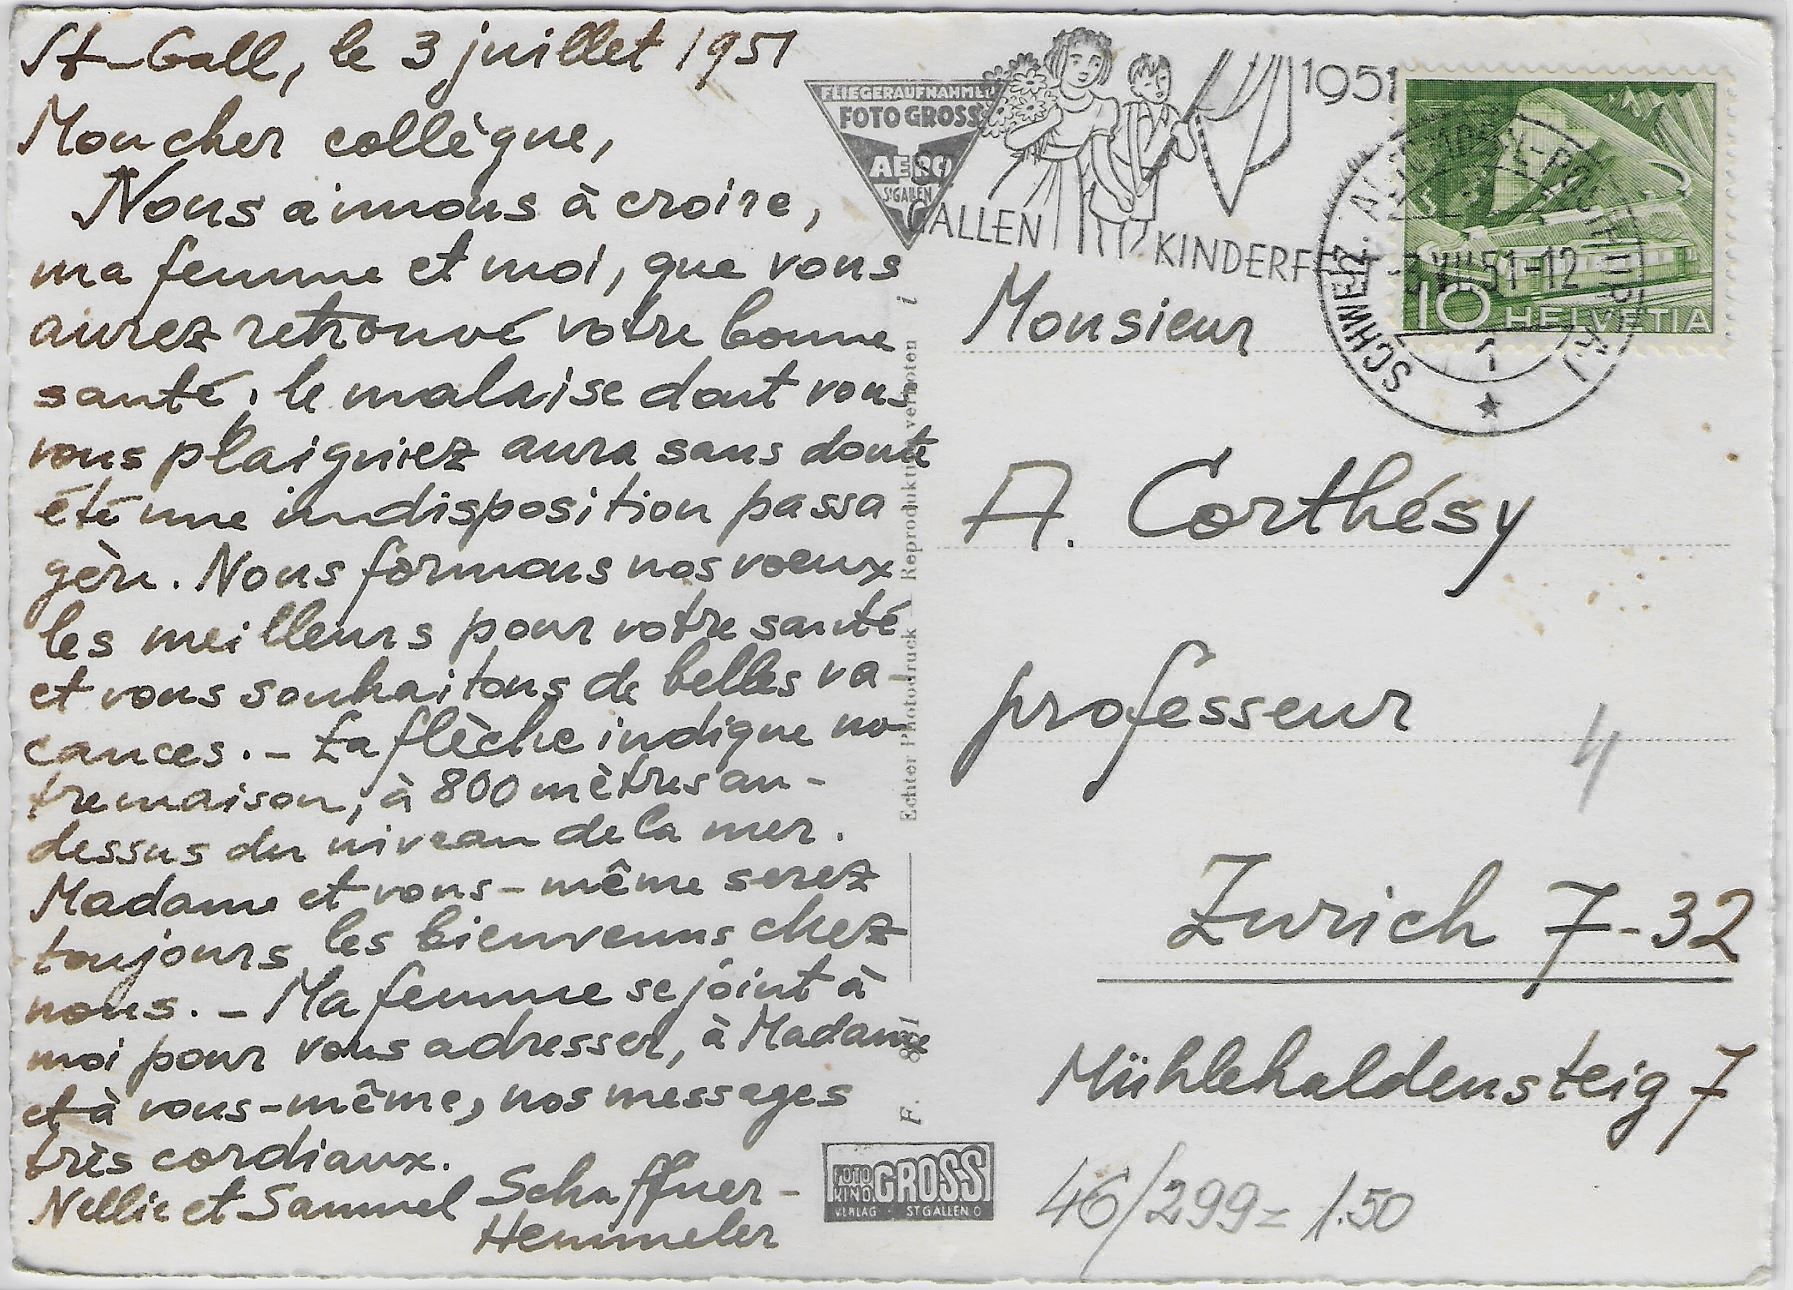 St-Gall, le 3 juillet 1951
Mon cher collègue,
Nous aimons à croire,
ma femme et moi, que vous
aurez retrouvé votre bonne
santé; le malaise dont vous
vous plaigniez aura sans doute
été une indisposition passa
gère. Nous formons nos voeux
les meilleurs pour votre santé
et vous souhaitons de belles va-
cances. - La flèche indique no-
tre maison, à 800 mètres au-
dessus du niveau de la mer.
Madame et vous-même serez
toujours les bienvenus chez
nous. - Ma femme se joint à
moi pour vous adresser, à Madame
et à vous-même, nos messages
très cordiaux.
Nellie et Samuel Schaffner-
Hemmeler
FLIEGERAUFNAHME
FOTO GROSS
AERO
ST.GALLEN
1951
GALLEN KINDERF
SCHWEIZ. AUTOMOBIL-POSTBUREAU
VII.51-12
1
10 HELVETIA
Monsieur
A. Corthésy
professeur
4
Zurich 7-32
Mühlehaldensteig 7
46/299= 1.50
Echter Photodruck - Reproduktion verboten i
F. 881
FOTO KINO GROSS
VERLAG ST GALLEN O